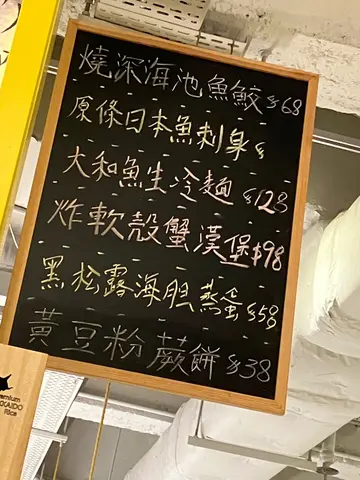 燒深海池魚鮫 $68
原條日本魚刺身 $
大和魚生冷麵 $123
炸軟殼蟹漢堡 $98
黑松露海胆蒸蛋 $58
黃豆粉蕨餅 $38
Premium
HOKKAIDO
Rice